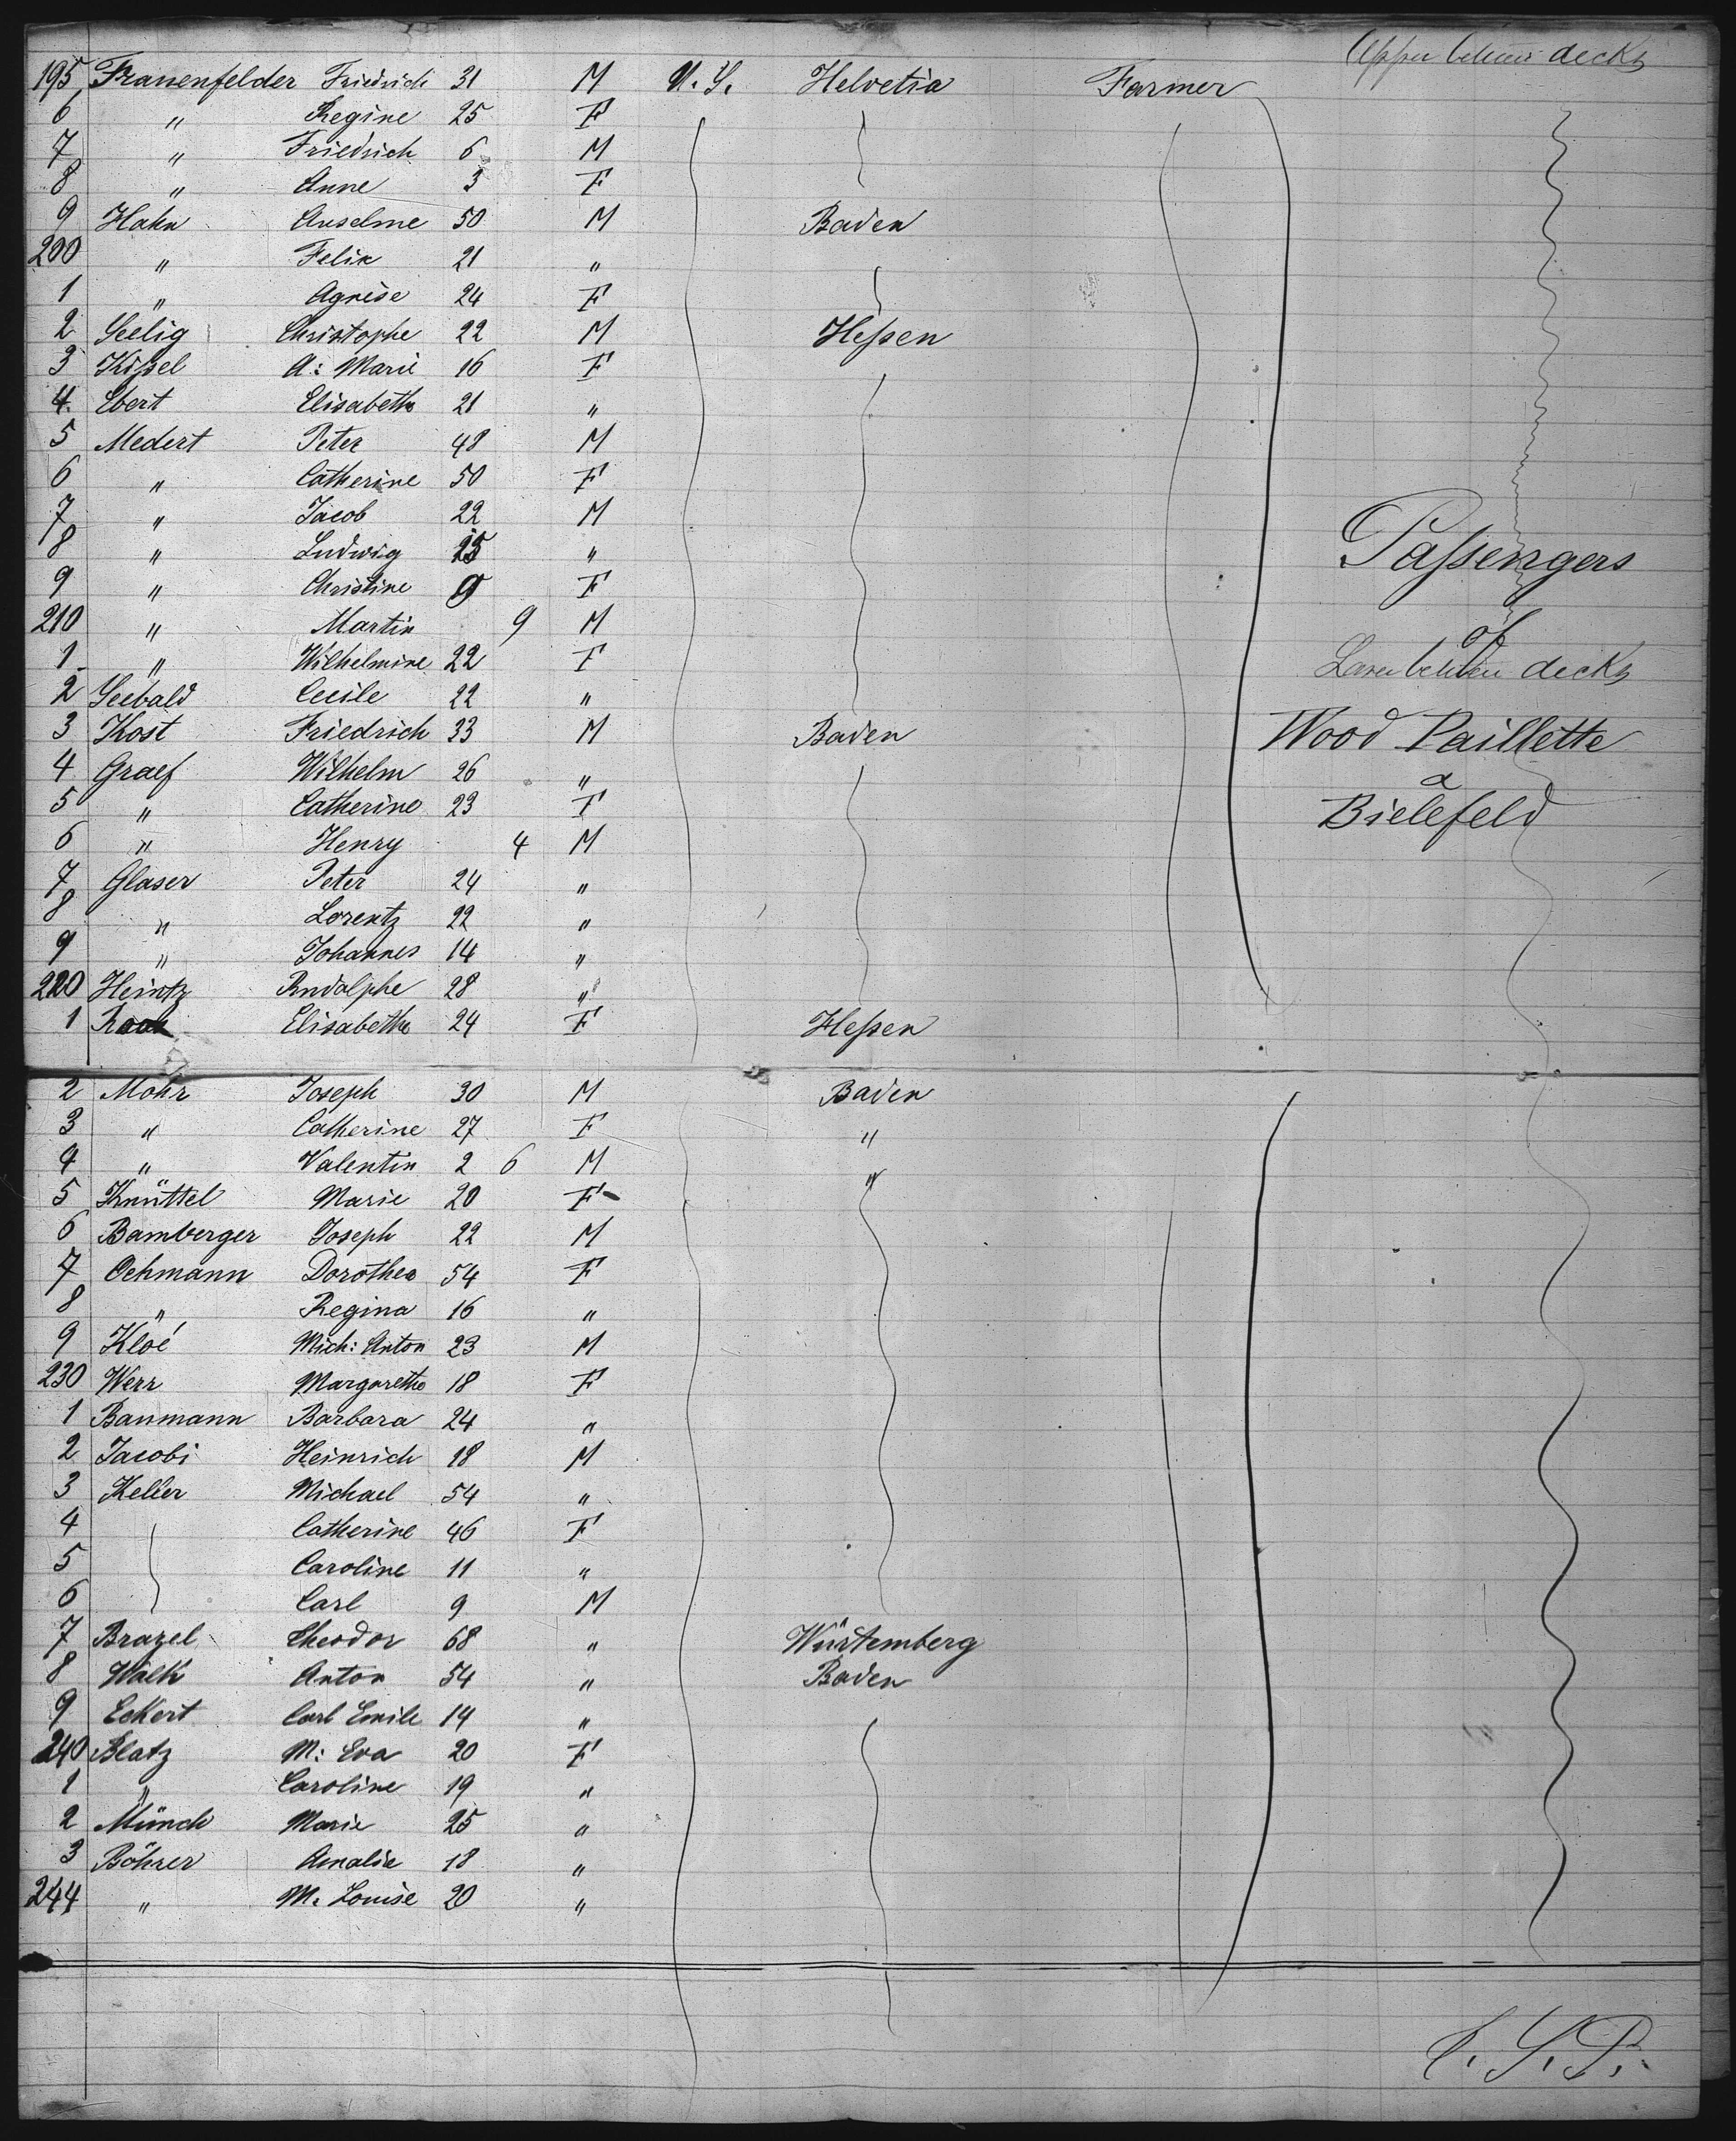 Upper between decks
195 Frauenfelder Friedrich 31 M U.S. Helvetia Farmer
6 " Regine 25 F
7 " Friedrich 6 M
8 " Anne 3 F
9 Hahn Anselme 50 M Baden
200 " Felix 21 "
1 " Agnise 24 F
2 Seelig Christophe 22 M Heßen
3 Kißel A: Marie 16 F
4. Ebert Elisabeth 21 "
5 Medert Peter 48 M
6 " Catherine 50 F
7 " Jacob 22 M
8 " Ludwig 15 "
9 " Christine 9 F
210 " Martin 9 M
1 " Wilhelmine 22 F
2 Seebald Cecile 22 "
3 Kost Friedrich 33 M Baden
4 Graef Wilhelm 26 "
5 " Catherine 23 F
6 " Henry 4 M
7 Glaser Peter 24 "
8 " Lorentz 22 "
9 " Johannes 14 "
220 Heintz Rudolphe 28 "
1 Elisabeth 24 F Heßen
Paßengers
of
decks
Wood Paillette
a
Bielefeld
2 Mohr Joseph 30 M Baden
3 " Catherine 27 F "
4 " Valentin 2 6 M "
5 Knüttel Marie 20 F
6 Bamberger Joseph 22 M
7 Oehmann Dorothea 54 F
8 " Regina 16 "
9 Kloé Mich: Anton 23 M
230 Werr Margarethe 18 F
1 Baumann Barbara 24 "
2 Jacobi Heinrich 18 M
3 Keller Michael 54 "
4 Catherine 46 F
5 Caroline 11 "
6 Carl 9 M
7 Brazel Theodor 68 " Würtemberg
8 Walk Anton 54 " Baden
9 Eckert Carl Emile 14 "
240 Blatz M: Eva 20 F
1 " Caroline 19 "
2 Münch Marie 25 "
3 Böhrer Amalie 18 "
244 " M. Louise 20 "